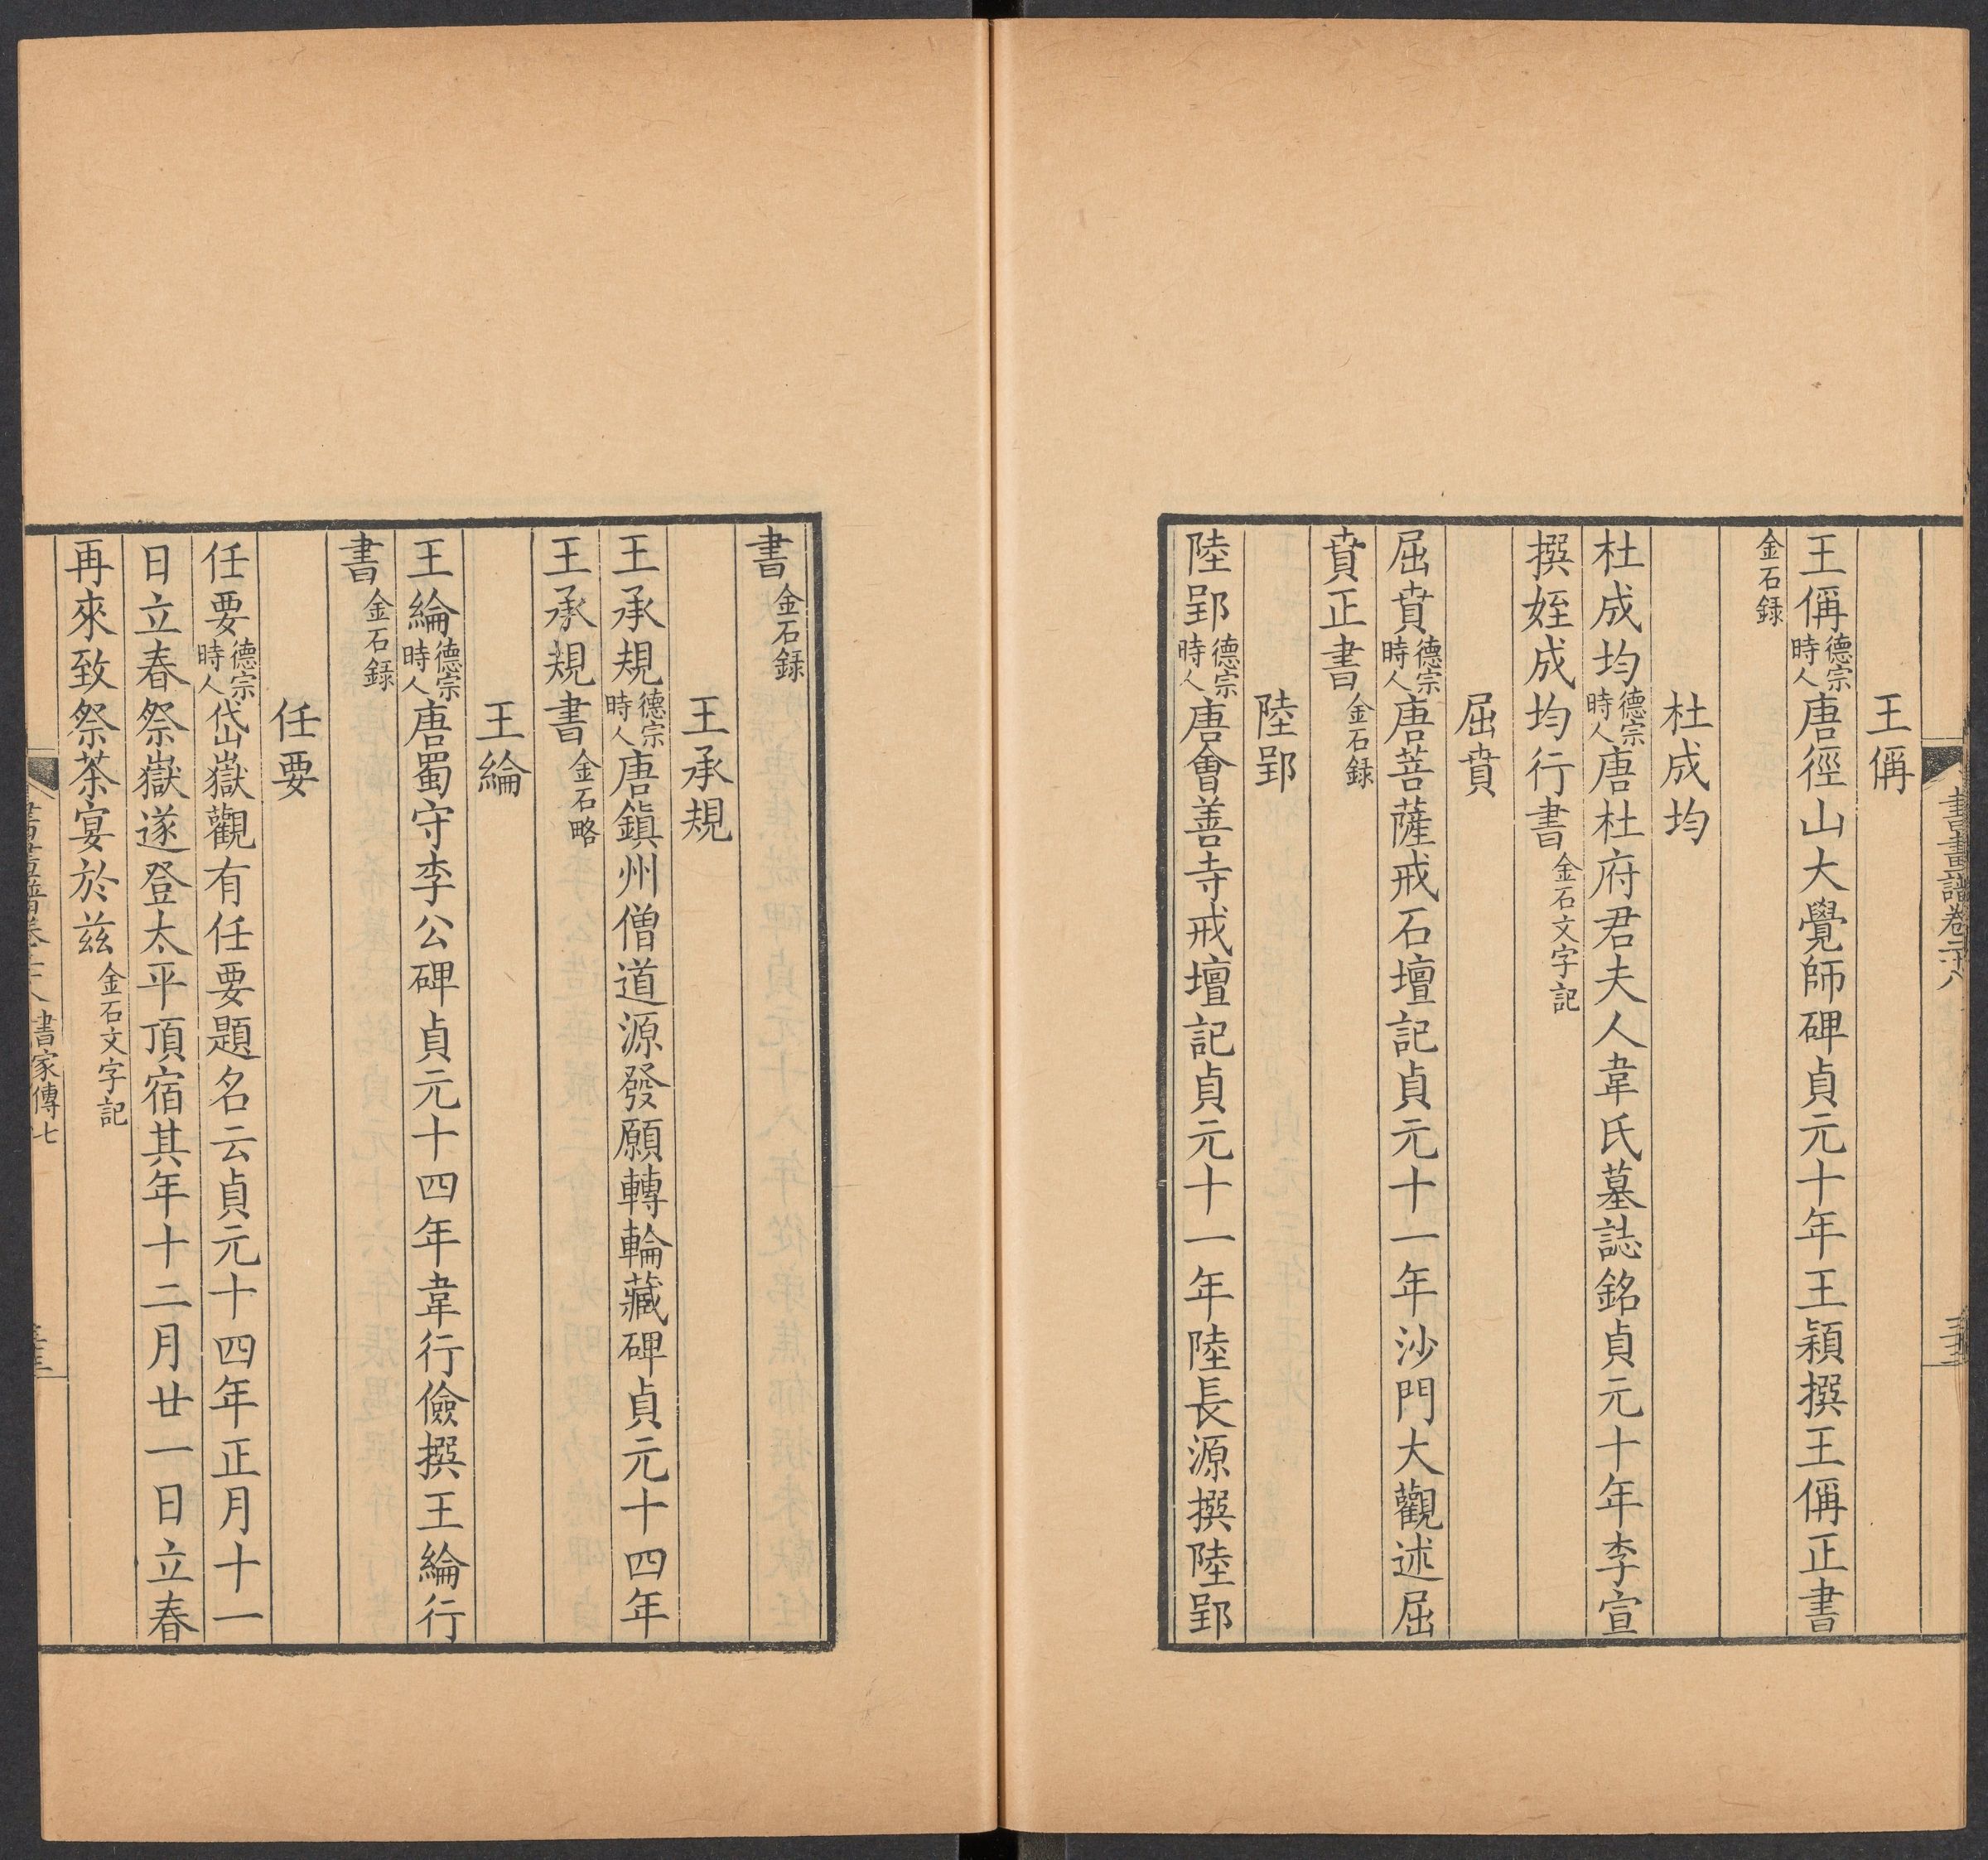 書畫譜卷二十八
王偁
王偁德宗時人唐徑山大覺師碑貞元十年王穎撰王偁正書
金石録
杜成均
杜成均德宗時人唐杜府君夫人韋氏墓誌銘貞元十年李宣
撰姪成均行書金石文字記
屈賁
屈賁德宗時人唐菩薩戒石壇記貞元十一年沙門大觀述屈
賁正書金石録
陸郢
陸郢德宗時人唐會善寺戒壇記貞元十一年陸長源撰陸郢
書金石録
王承規
王承規德宗時人唐鎮州僧道源發願轉輪藏碑貞元十四年
王承規書金石略
王綸
王綸德宗時人唐蜀守李公碑貞元十四年韋行儉撰王綸行
書金石録
任要
任要德宗時人岱嶽觀有任要題名云貞元十四年正月十一
日立春祭嶽遂登太平頂宿其年十二月廿一日立春
再來致祭茶宴於茲金石文字記
書畫譜卷二十八 書家傳七